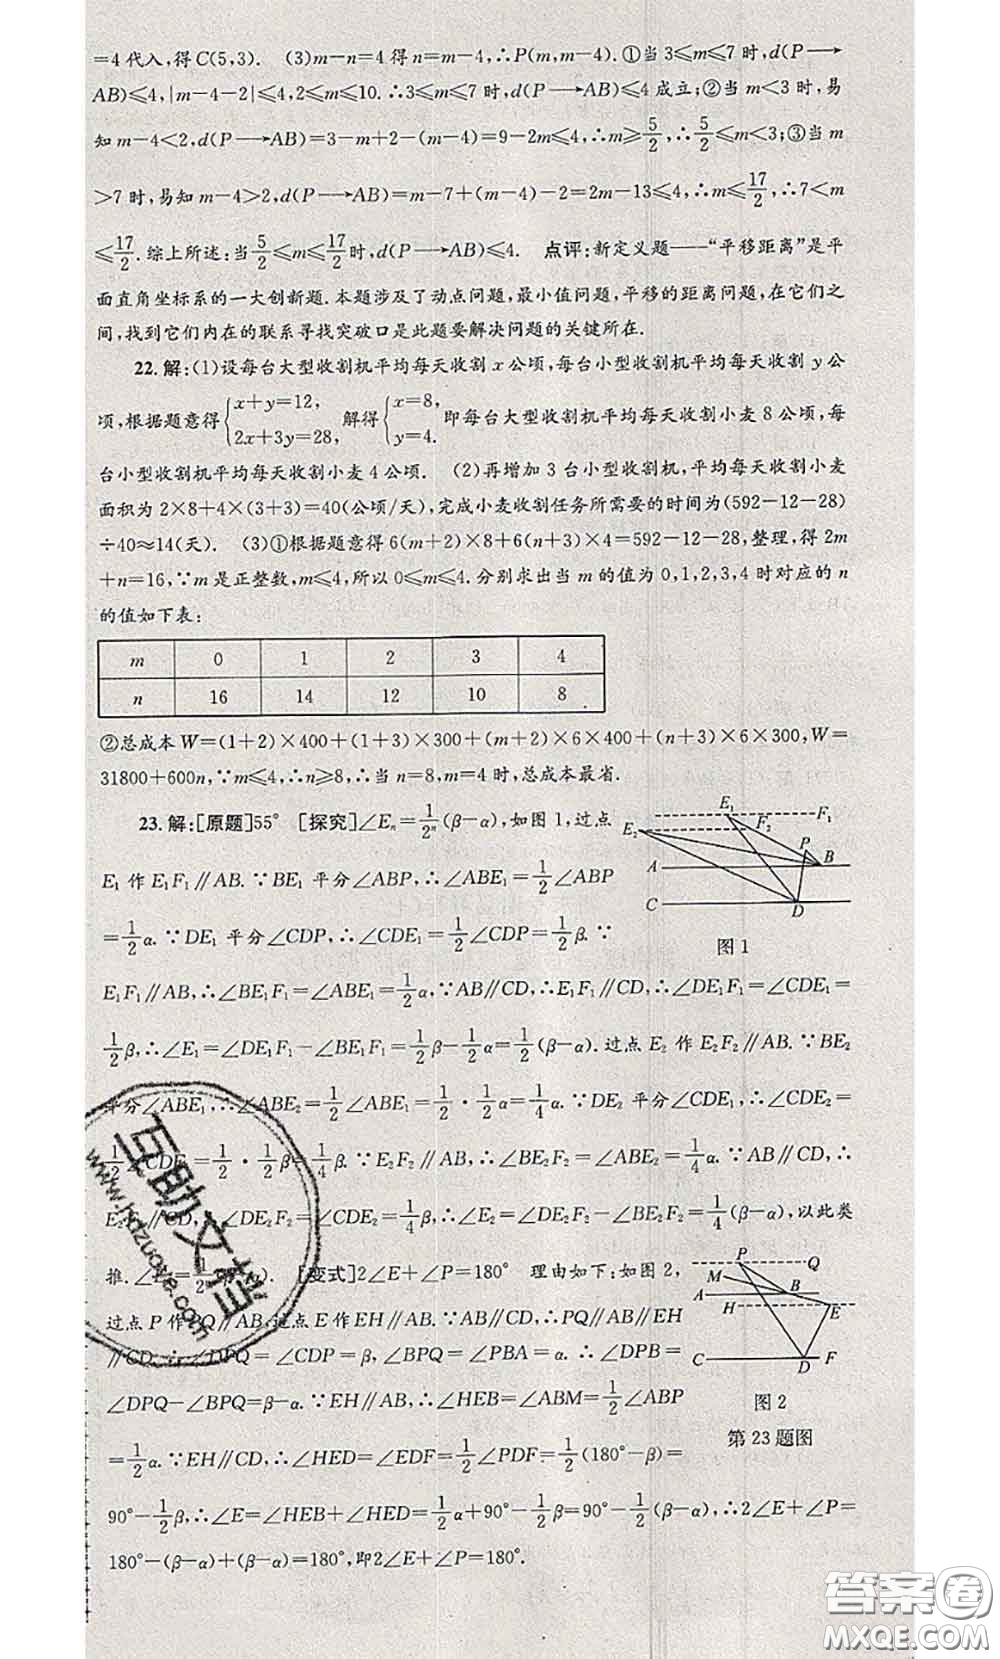 =4代入,得C(5,3). (3)m-n=4得n=m-4,∴P(m,m-4).①当3≤m≤7时,d(P→
AB)≤4,|m-4-2|≤4,2≤m≤10.∴3≤m≤7时,d(P→AB)≤4成立;②当m<3时,易
知m-4<2,d(P→AB)=3-m+2-(m-4)=9-2m≤4,∴m≥5/2,∴5/2≤m<3;③当m
>7时,易知m-4>2,d(P→AB)=m-7+(m-4)-2=2m-13≤4,∴m≤17/2,∴7<m
≤17/2.综上所述:当5/2≤m≤17/2时,d(P→AB)≤4. 点评:新定义题——“平移距离”是平
面直角坐标系的一大创新题.本题涉及了动点问题,最小值问题,平移的距离问题,在它们之
间,找到它们内在的联系寻找突破口是此题要解决问题的关键所在.
22.解:(1)设每台大型收割机平均每天收割x公顷,每台小型收割机平均每天收割y公
顷,根据题意得{x+y=12, 2x+3y=28,解得{x=8, y=4.即每台大型收割机平均每天收割小麦8公顷,每
台小型收割机平均每天收割小麦4公顷. (2)再增加3台小型收割机,平均每天收割小麦
面积为2×8+4×(3+3)=40(公顷/天),完成小麦收割任务所需要的时间为(592-12-28)
÷40≈14(天). (3)①根据题意得6(m+2)×8+6(n+3)×4=592-12-28,整理,得2m
+n=16,∵m是正整数,m≤4,所以0≤m≤4.分别求出当m的值为0,1,2,3,4时对应的n
的值如下表:
m 0 1 2 3 4
n 16 14 12 10 8
②总成本W=(1+2)×400+(1+3)×300+(m+2)×6×400+(n+3)×6×300,W=
31800+600n,∵m≤4,∴n≥8,∴当n=8,m=4时,总成本最省.
23.解:[原题]55° [探究]∠Eₙ=1/2ⁿ(β-α),如图1,过点
E₁作E₁F₁∥AB.∵BE₁平分∠ABP,∴∠ABE₁=1/2∠ABP
=1/2α.∵DE₁平分∠CDP,∴∠CDE₁=1/2∠CDP=1/2β.∵
E₁ F₁ E₂ F₂ P A B C D
图1
E₁F₁∥AB,∴∠BE₁F₁=∠ABE₁=1/2α,∵AB∥CD,∴E₁F₁∥CD,∴∠DE₁F₁=∠CDE₁=
1/2β,∴∠E₁=∠DE₁F₁-∠BE₁F₁=1/2β-1/2α=1/2(β-α).过点E₂作E₂F₂∥AB.∵BE₂
平分∠ABE₁,∴∠ABE₂=1/2∠ABE₁=1/2·1/2α=1/4α.∵DE₂平分∠CDE₁,∴∠CDE₂=
1/2∠CDE₁=1/2·1/2β=1/4β.∵E₂F₂∥AB,∴∠BE₂F₂=∠ABE₂=1/4α.∵AB∥CD,∴
E₂F₂∥CD,∴∠DE₂F₂=∠CDE₂=1/4β,∴∠E₂=∠DE₂F₂-∠BE₂F₂=1/4(β-α),以此类
推. [变式]2∠E+∠P=180° 理由如下:如图2,
过点P作PQ∥AB,过点E作EH∥AB.∵AB∥CD,∴PQ∥AB∥EH
∥CD,∴∠DPQ=∠CDP=β,∠BPQ=∠PBA=α.∴∠DPB=
∠DPQ-∠BPQ=β-α.∵EH∥AB,∴∠HEB=∠ABM=1/2∠ABP
=1/2α.∵EH∥CD,∴∠HED=∠EDF=1/2∠PDF=1/2(180°-β)=
P Q M A B H E C D F
图2
第23题图
90°-1/2β,∴∠E=∠HEB+∠HED=1/2α+90°-1/2β=90°-1/2(β-α),∴2∠E+∠P=
180°-(β-α)+(β-α)=180°,即2∠E+∠P=180°.
互助文档
www.hzuowe.com
答案圈
MXQE.COM